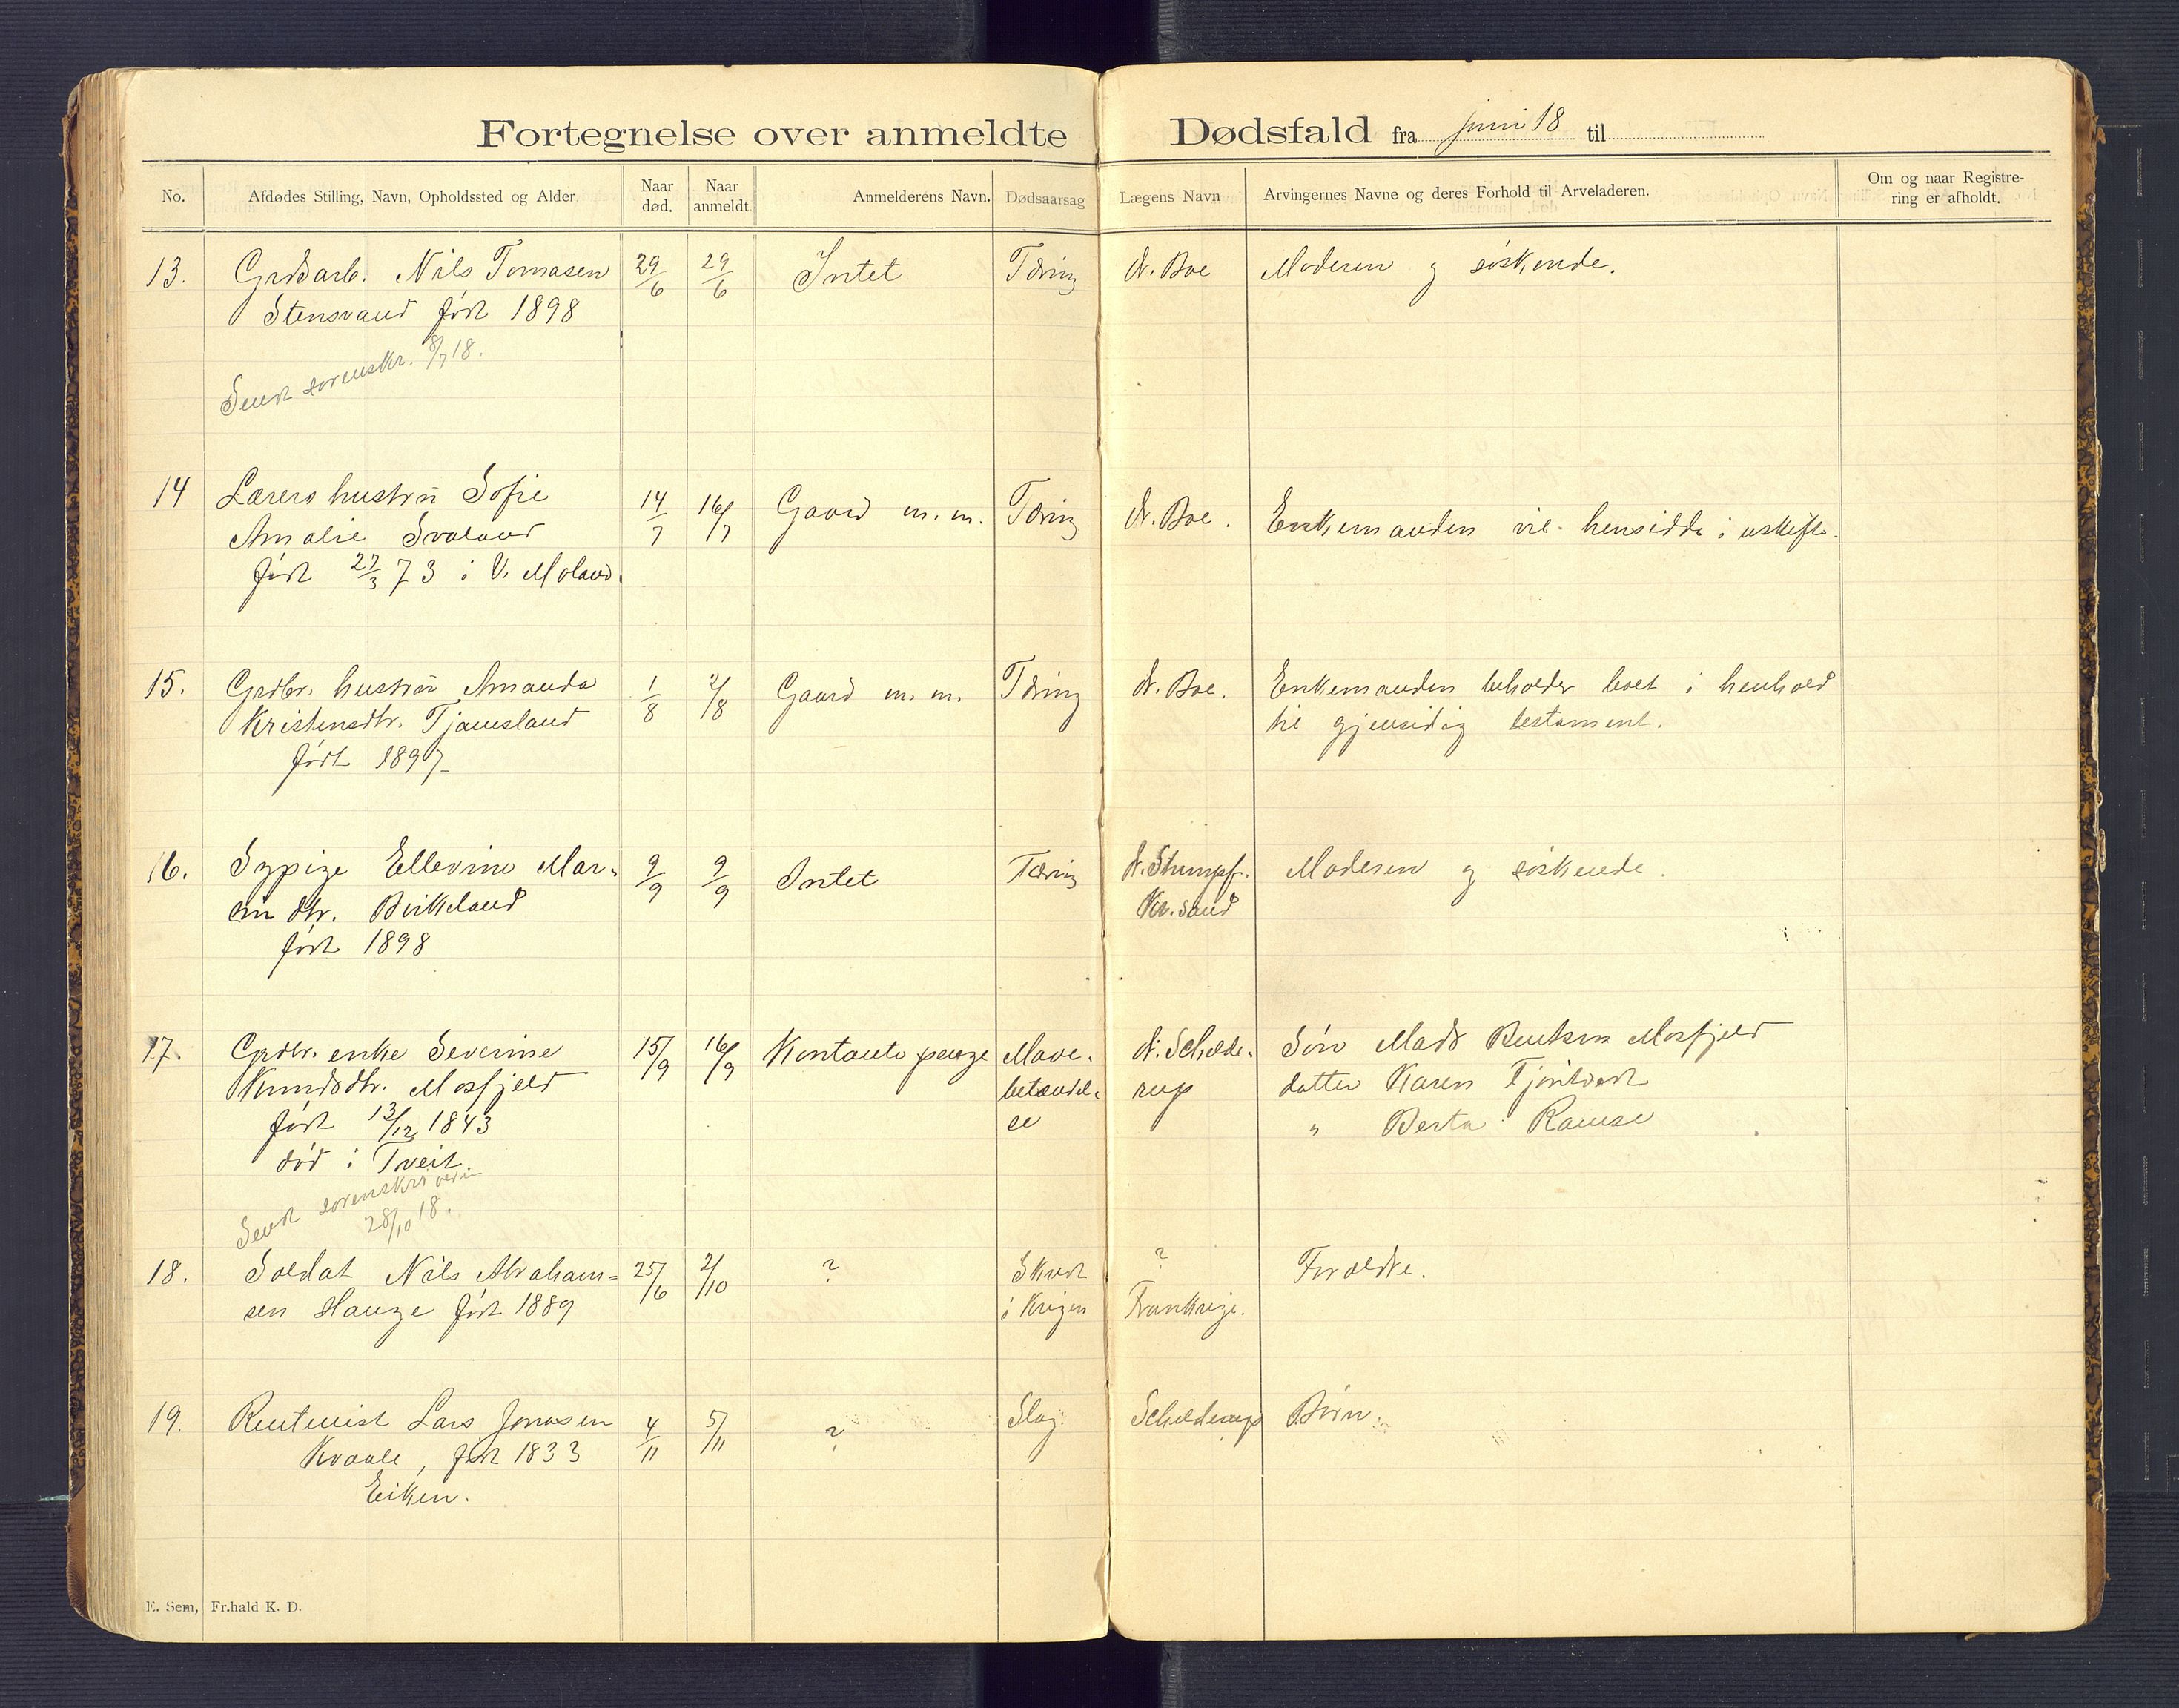 Fortegnelse over anmeldte Dødsfald fra juni 18 til
No. Afdødes Stilling, Navn, Opholdssted og Alder Naar død. Naar anmeldt Anmelderens Navn. Dødsaarsag Lægens Navn Arvingernes Navne og deres Forhold til Arveladeren. Om og naar Registrering er afholdt.
13. Grdarb. Nils Tomasen 29/6 29/6 Intet Tæring dr. Boe Moderen og søskende.
Stensvand født 1898
Sendt sorenskr. 8/7 18.
14 Lærers hustru Sofie 14/7 16/7 Gaard m. m. Tæring dr. Boe. Enkemanden vil hensidde i uskifte.
Amalie Svaland
født 27/3 73 i V. Moland.
15. Grdbr. hustru Amanda 1/8 2/8 Gaard m. m. Tæring dr. Boe. Enkemanden beholder boet i henhold
Kristensdtr. Tjamsland til gjensidig testament.
født 1897
16. Sypige Ellevine Mar- 9/9 9/9 Intet Tæring dr. Stumpf. Moderen og søskende.
dtr. Birkeland Kr.sand
født 1898
17. Grdbr. enke Severine 15/9 16/9 Kontante penge Mave- dr. Schilde- Søn Mads Bentsen Mosfjeld
Knudsdtr. Mosfjeld betændel- rup datter Karen
født 13/12 1843 se " Berta Ramse
død i Tveit.
Sendt sorenskriveren
28/10 18.
18. Soldat Nils Abraham- 25/6 2/10 ? Skudt ? Forældre.
sen Hauge født 1889 i Krigen Frankrige.
19. Rentenist Lars Jonasen 4/11 5/11 ? Slag. Schilderup Børn.
Kvaale, født 1833
Eiken.
E. Sem, Fr.hald K. D.